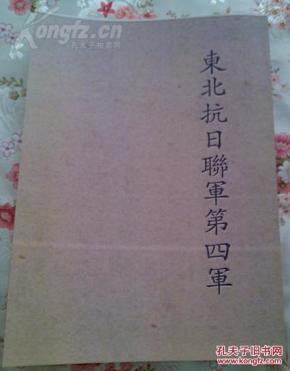 Kongfz.com
孔夫子旧书网
東北抗日聯軍第四軍
孔夫子旧书网
KONGFZ.COM